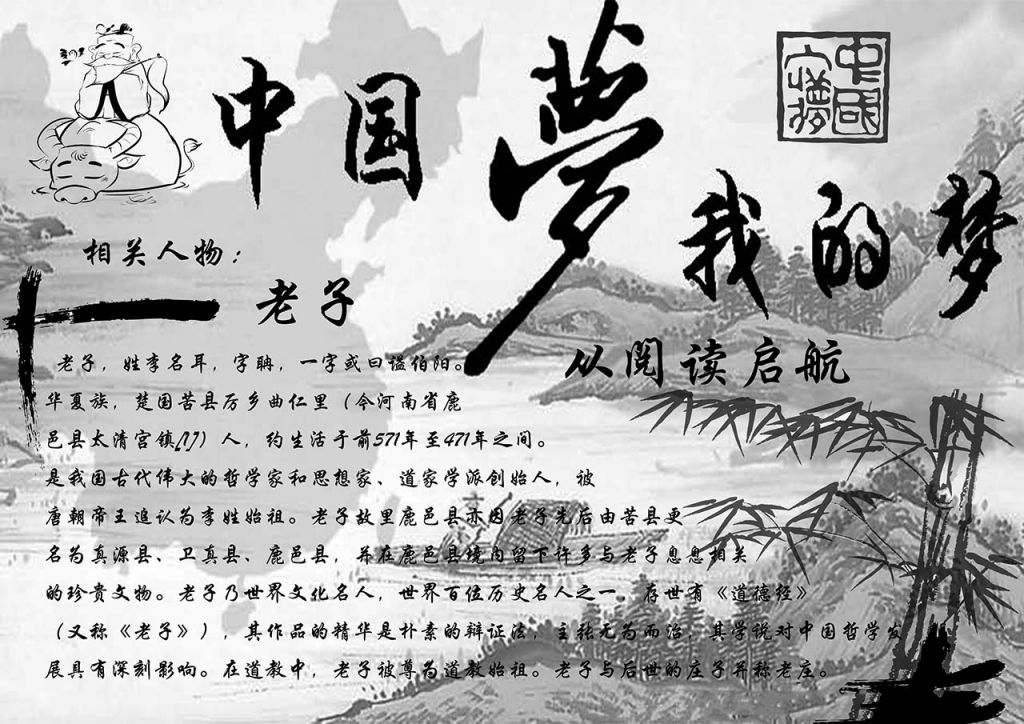 中国夢
我的梦
从閱读启航
相关人物：
老子
老子，姓李名耳，字聃，一字或曰谥伯阳。
华夏族，楚国苦县厉乡曲仁里（今河南省鹿
邑县太清宫镇[17]）人，约生活于前571年至471年之间。
是我国古代伟大的哲学家和思想家、道家学派创始人，被
唐朝帝王追认为李姓始祖。老子故里鹿邑县亦因老子先后由苦县更
名为真源县、卫真县、鹿邑县，并在鹿邑县境内留下许多与老子息息相关
的珍贵文物。老子乃世界文化名人，世界百位历史名人之一。存世有《道德经》
（又称《老子》），其作品的精华是朴素的辩证法，主张无为而治，其学说对中国哲学发
展具有深刻影响。在道教中，老子被尊为道教始祖。老子与后世的庄子并称老庄。